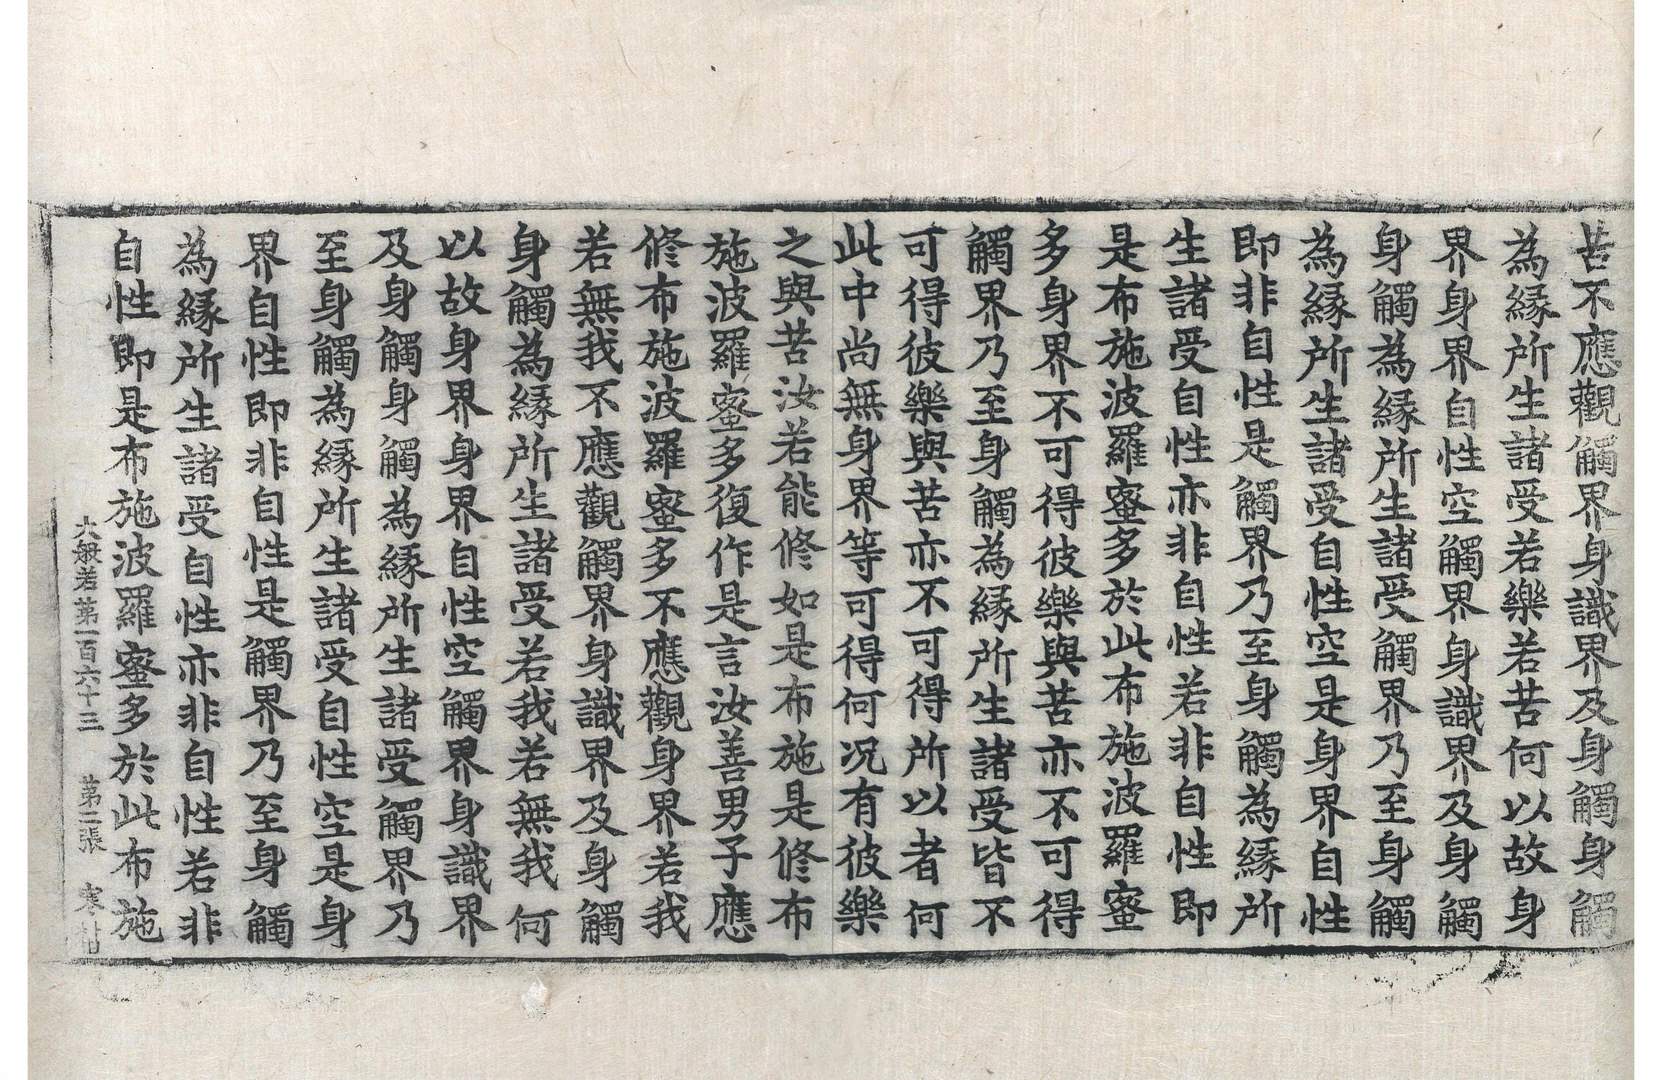 苦不應觀觸界身識界及身觸身觸
為緣所生諸受若樂若苦何以故身
界身界自性空觸界身識界及身觸
身觸為緣所生諸受觸界乃至身觸
為緣所生諸受自性空是身界自性
即非自性是觸界乃至身觸為緣所
生諸受自性亦非自性若非自性即
是布施波羅蜜多於此布施波羅蜜
多身界不可得彼樂與苦亦不可得
觸界乃至身觸為緣所生諸受皆不
可得彼樂與苦亦不可得所以者何
此中尚無身界等可得何况有彼樂
之與苦汝若能修如是布施是修布
施波羅蜜多復作是言汝善男子應
修布施波羅蜜多不應觀身界若我
若無我不應觀觸界身識界及身觸
身觸為緣所生諸受若我若無我何
以故身界身界自性空觸界身識界
及身觸身觸為緣所生諸受觸界乃
至身觸為緣所生諸受自性空是身
界自性即非自性是觸界乃至身觸
為緣所生諸受自性亦非自性若非
自性即是布施波羅蜜多於此布施
大般若第一百六十三 第二張 寒